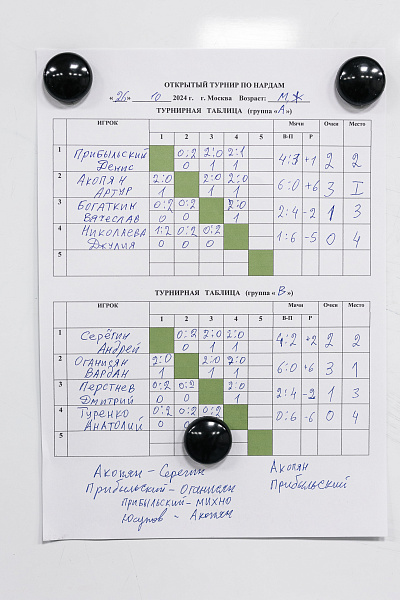 ОТКРЫТЫЙ ТУРНИР ПО НАРДАМ
«26» 10 2024 г. г. Москва Возраст: М Ж
ТУРНИРНАЯ ТАБЛИЦА (группа «А»)
ИГРОК Мячи Очки Место
1 2 3 4 5 В-П Р
1 Прибыльский 0:2 2:0 2:1 4:3 +1 2 2
Денис 0 1 1
2 Акопян 2:0 2:0 2:0 6:0 +6 3 I
Артур 1 1 1
3 Богаткин 0:2 0:2 2:0 2:4 -2 1 3
Вячеслав 0 0 1
4 Николаева 1:2 0:2 0:2 1:6 -5 0 4
Джулия 0 0 0
5
ТУРНИРНАЯ ТАБЛИЦА (группа «В»)
ИГРОК Мячи Очки Место
1 2 3 4 5 В-П Р
1 Серёгин 0:2 2:0 2:0 4:2 +2 2 2
Андрей 0 1 1
2 Оганисян 2:0 2:0 2:0 6:0 +6 3 1
Вардан 1 1 1
3 Перстнев 0:2 0:2 2:0 2:4 -2 1 3
Дмитрий 0 0 1
4 Туренко 0:2 0:2 0:2 0:6 -6 0 4
Анатолий 0
5
Акопян - Серегин Акопян
Прибыльский - Оганисян Прибыльский
Прибыльский - МИХНО
Юсупов - Акопян